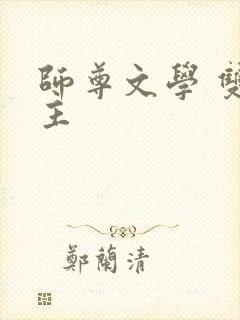 師尊文學 雙
主
鄭蘭清